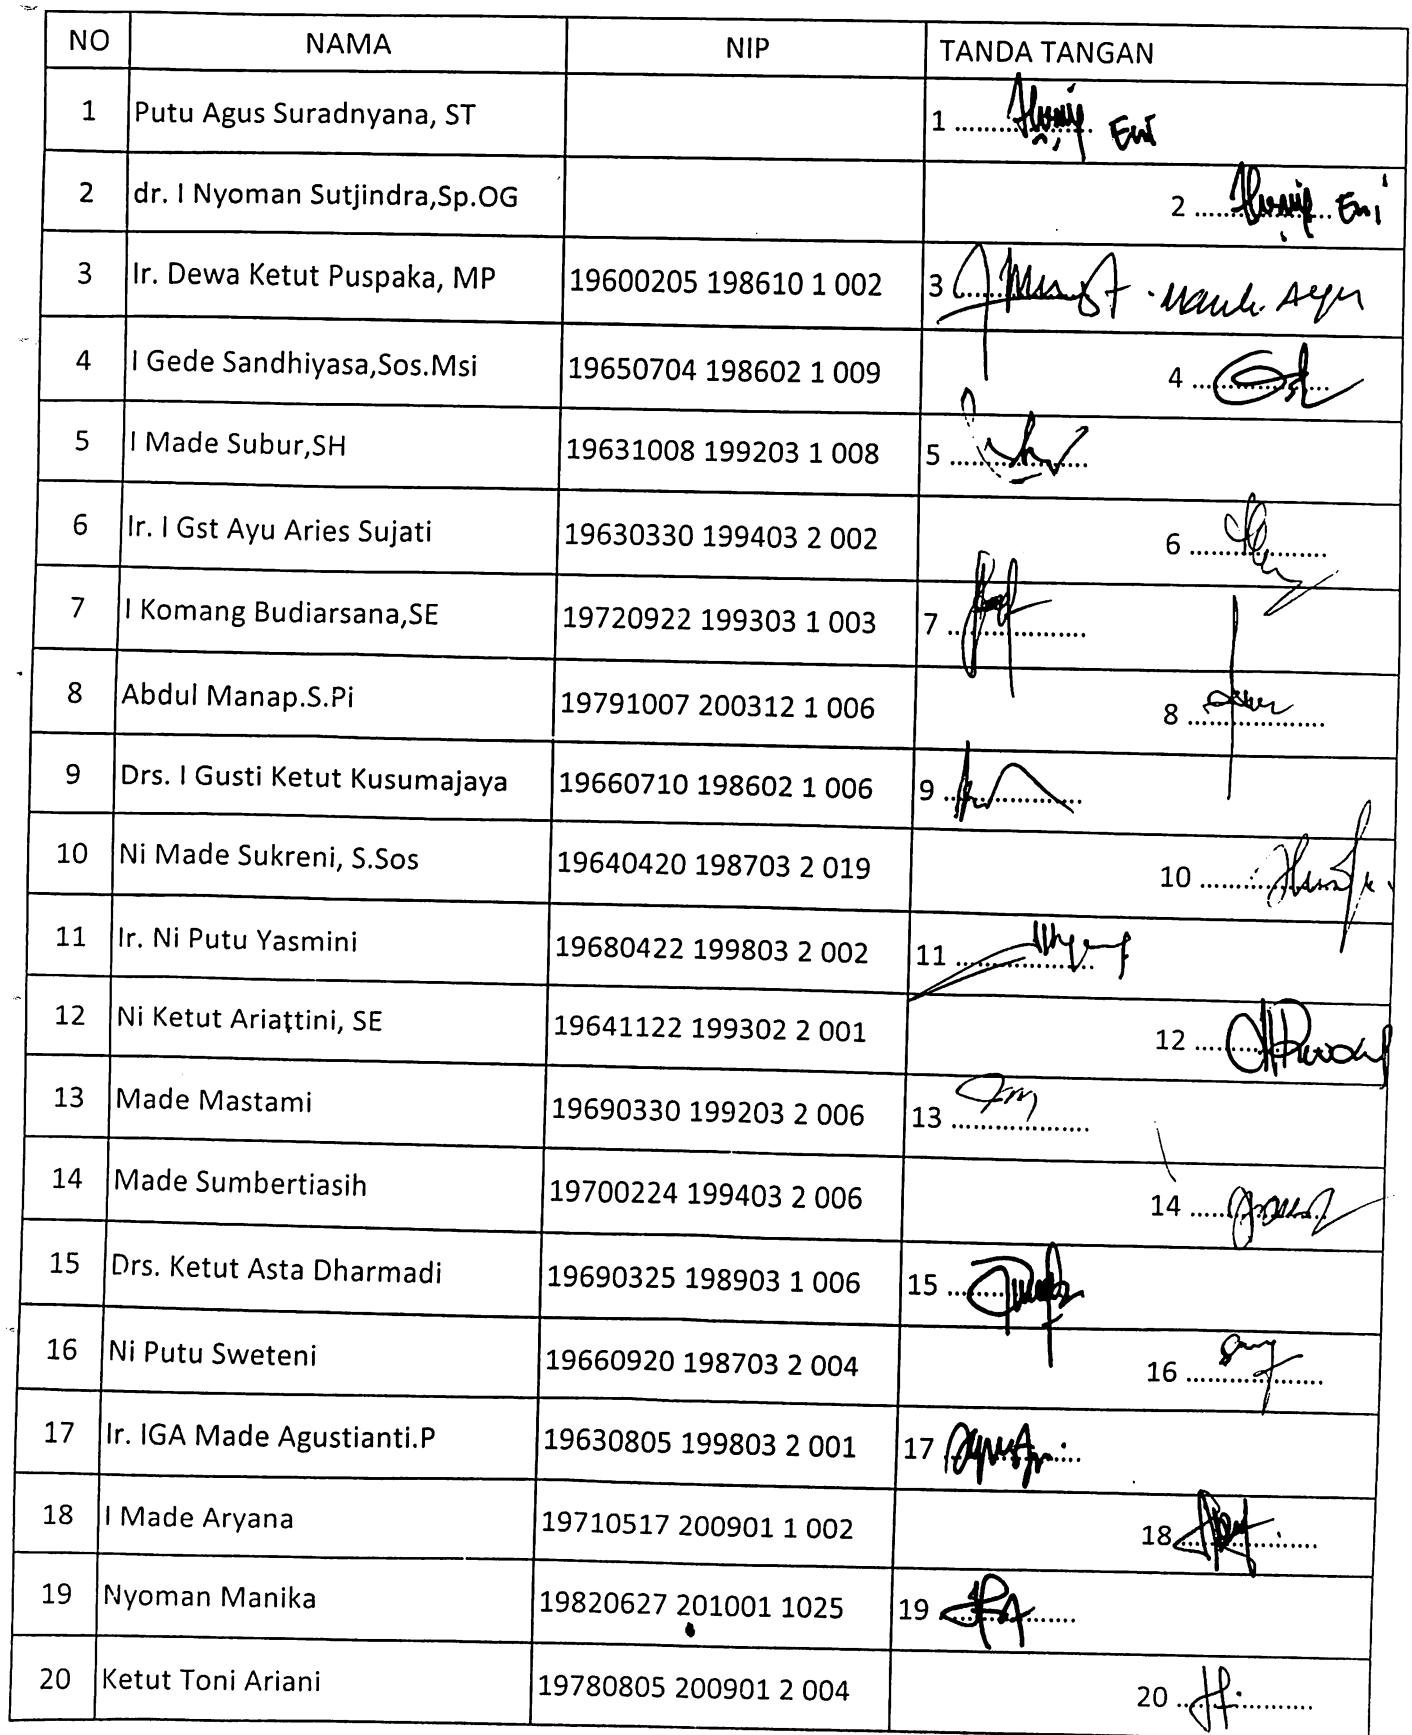 NO NAMA NIP TANDA TANGAN
1 Putu Agus Suradnyana, ST 1 ............... Eni
2 dr. I Nyoman Sutjindra,Sp.OG 2 ............... Eni
3 Ir. Dewa Ketut Puspaka, MP 19600205 198610 1 002 3 ...............
4 I Gede Sandhiyasa,Sos.Msi 19650704 198602 1 009 4 ...............
5 I Made Subur,SH 19631008 199203 1 008 5 ...............
6 Ir. I Gst Ayu Aries Sujati 19630330 199403 2 002 6 ...............
7 I Komang Budiarsana,SE 19720922 199303 1 003 7 ...............
8 Abdul Manap.S.Pi 19791007 200312 1 006 8 ...............
9 Drs. I Gusti Ketut Kusumajaya 19660710 198602 1 006 9 ...............
10 Ni Made Sukreni, S.Sos 19640420 198703 2 019 10 ...............
11 Ir. Ni Putu Yasmini 19680422 199803 2 002 11 ...............
12 Ni Ketut Ariattini, SE 19641122 199302 2 001 12 ...............
13 Made Mastami 19690330 199203 2 006 13 ...............
14 Made Sumbertiasih 19700224 199403 2 006 14 ...............
15 Drs. Ketut Asta Dharmadi 19690325 198903 1 006 15 ...............
16 Ni Putu Sweteni 19660920 198703 2 004 16 ...............
17 Ir. IGA Made Agustianti.P 19630805 199803 2 001 17 ...............
18 I Made Aryana 19710517 200901 1 002 18 ...............
19 Nyoman Manika 19820627 201001 1025 19 ...............
20 Ketut Toni Ariani 19780805 200901 2 004 20 ...............